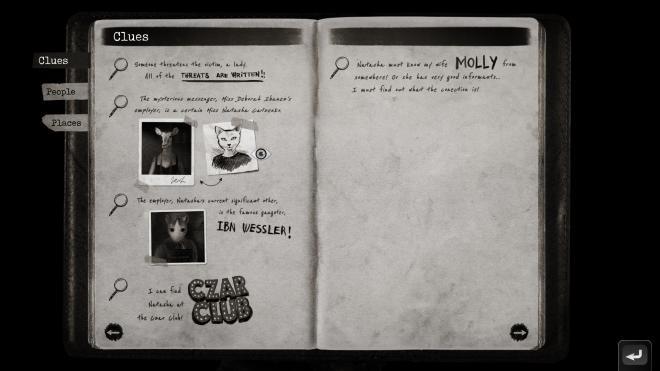 Clues
Clues
People
Places
Someone threatens the victim, a lady.
All of the THREATS ARE WRITTEN!!
The mysterious messenger, Miss Deborah
employer, is a certain Miss Natasha
The employer, Natasha's current significant other,
is the famous gangster,
IBN WESSLER!
I can find
Natasha at
the Czar Club!
CZAR
CLUB
Natasha must know my wife MOLLY from
somewhere! Or she has very good informants..
I must find out what the conection is!